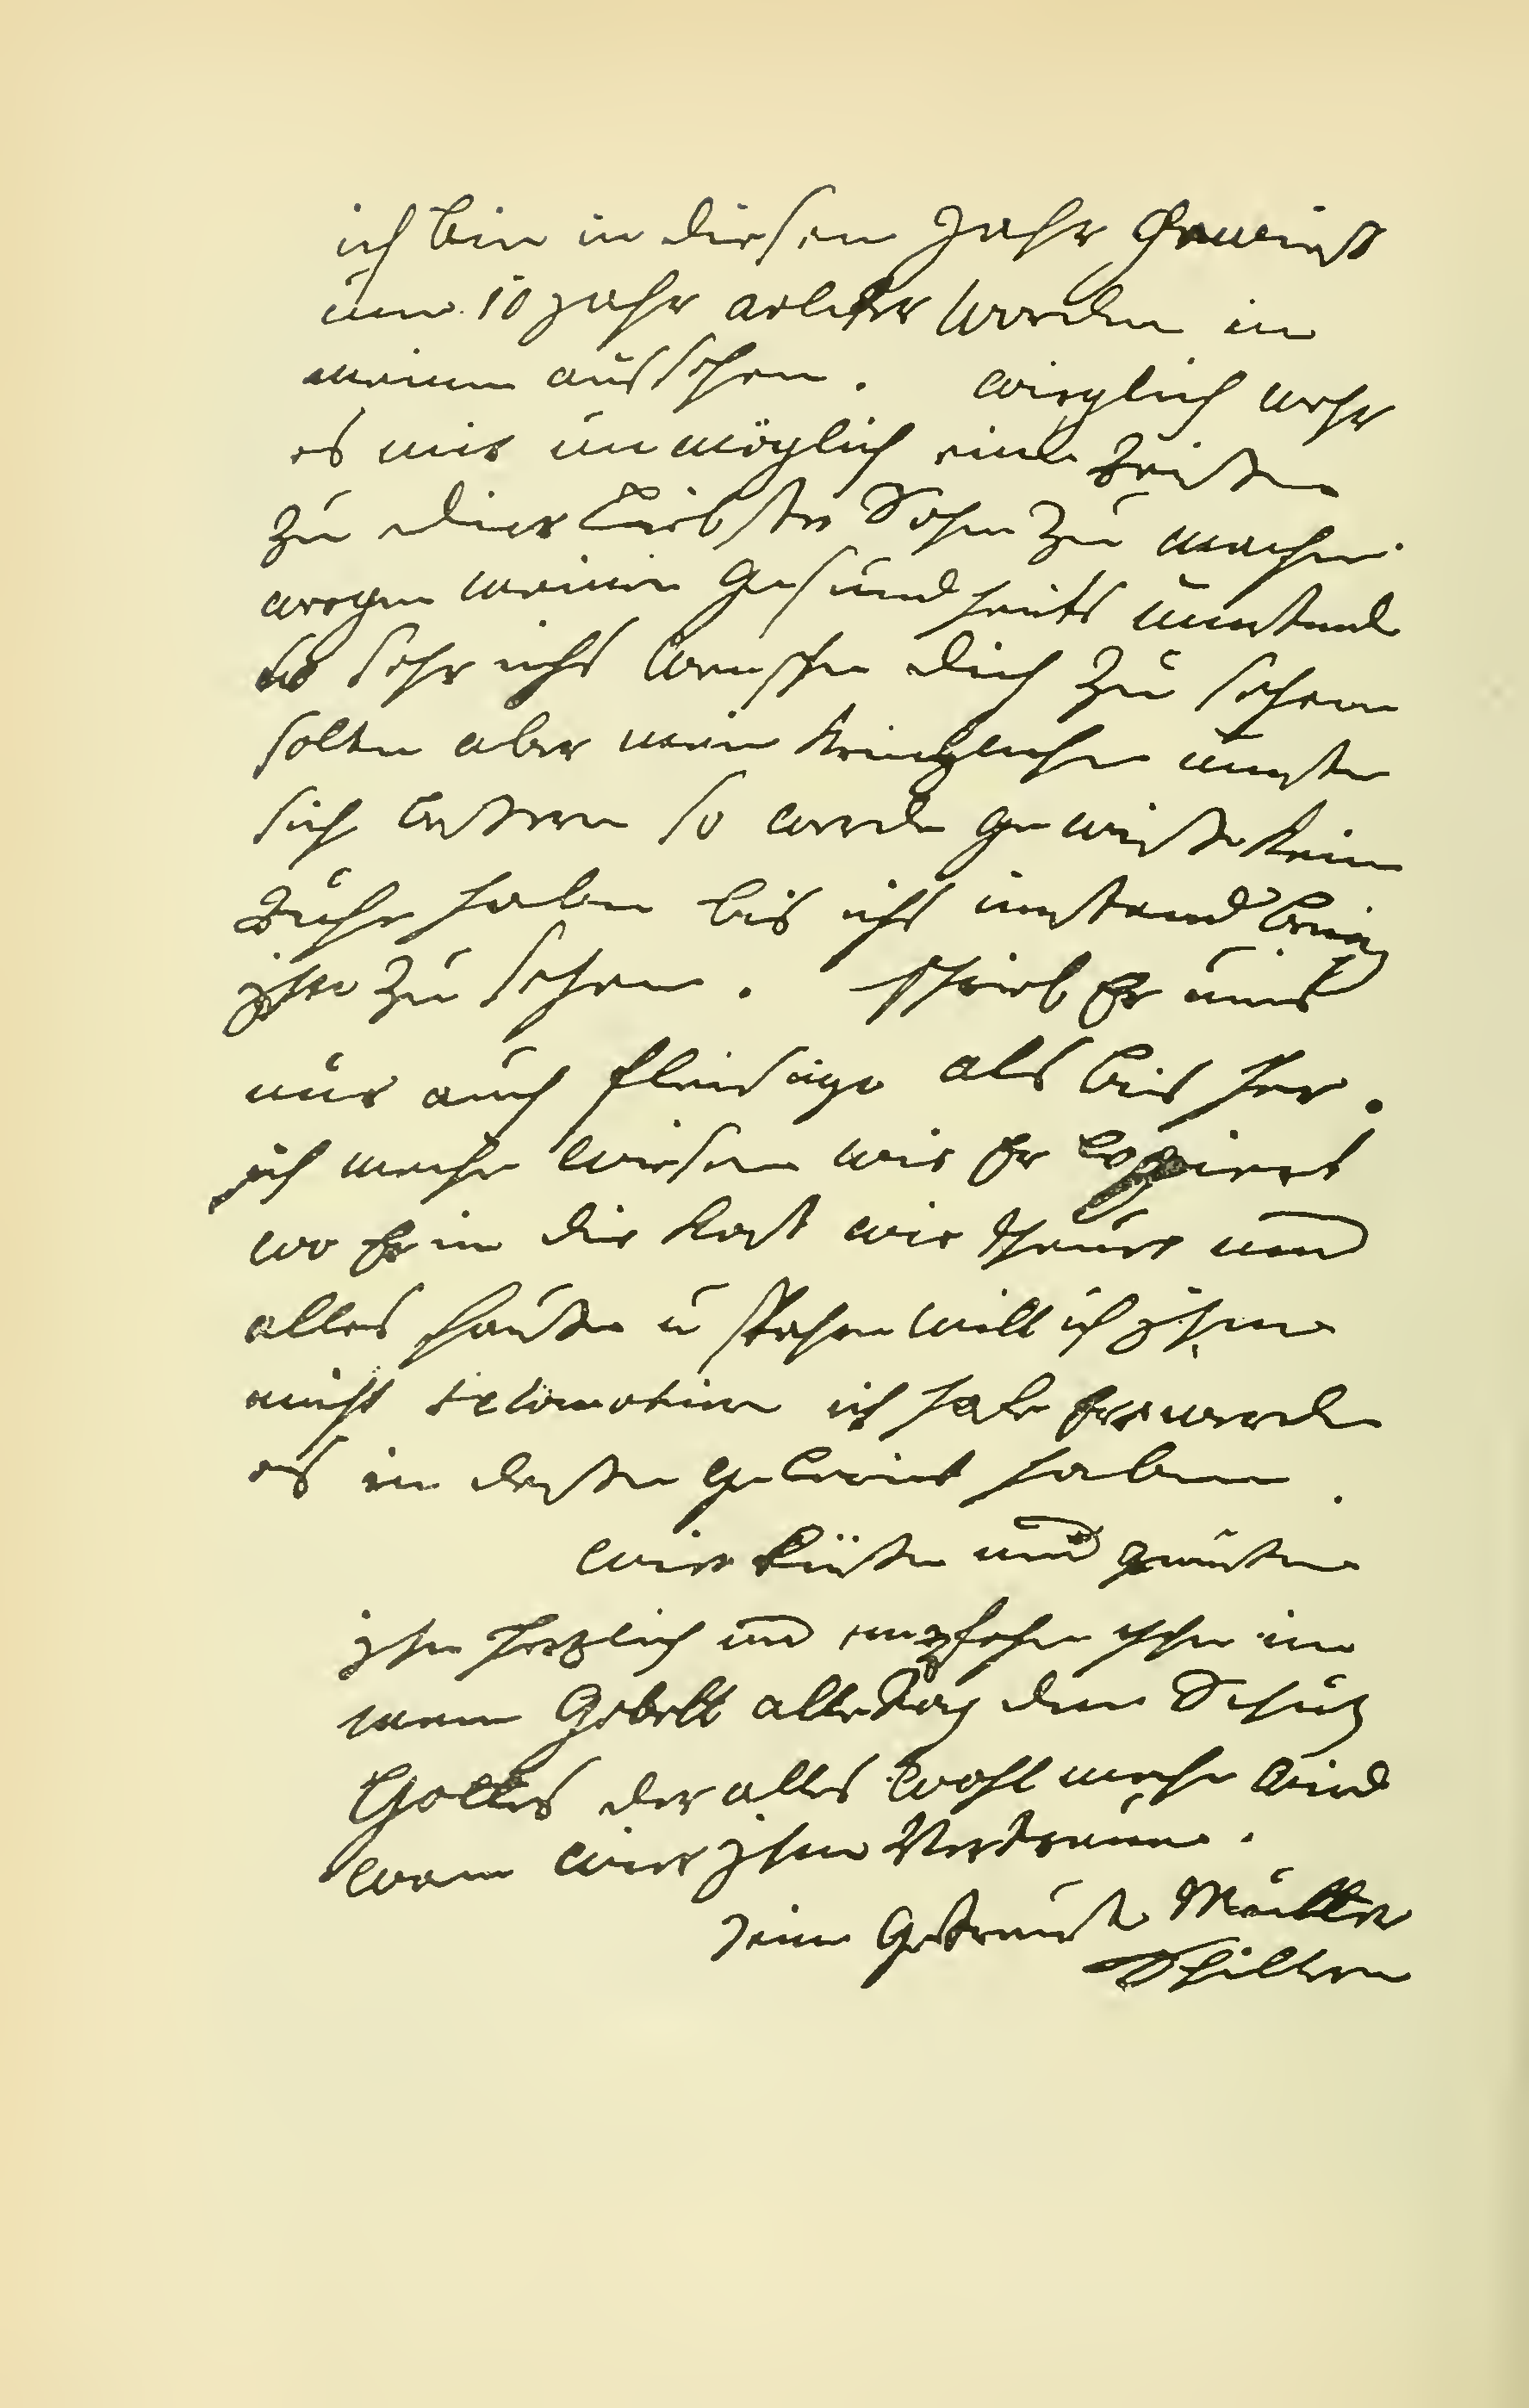 ich bin in diesen Jahr Gewiest
um 10 Jahr aelder worden in
meinem aussehen. wirglich wehr
es mir unmöglich eine Reiße
zu dier Liebster Sohn zu machen
wegen meinen Gesundheits umstend
so sehr ichs wensche dich zu sehen
solten aber mein umste
sich besseren so werde gewiß kein
Ruhe haben bis ichs imstand bring
jhn zu sehen. schreib Er uns
nur auch fleisiger als bis her.
ich mechte wiesen wie Er logiert
wo Er in die Kost wie theuer und
alles haußen u sparen will ich jhm
nicht ich hofe Er werde
es in deßen gelernt haben.
wier küßen und grüsen
jhn herzlich und empfehen ihn in
mein Gebett alle Tag den Schuz
Gottes der alles wohl mache wird
wan wier jhm Vertrauen.
sein Getreuste Mutter
Schillern